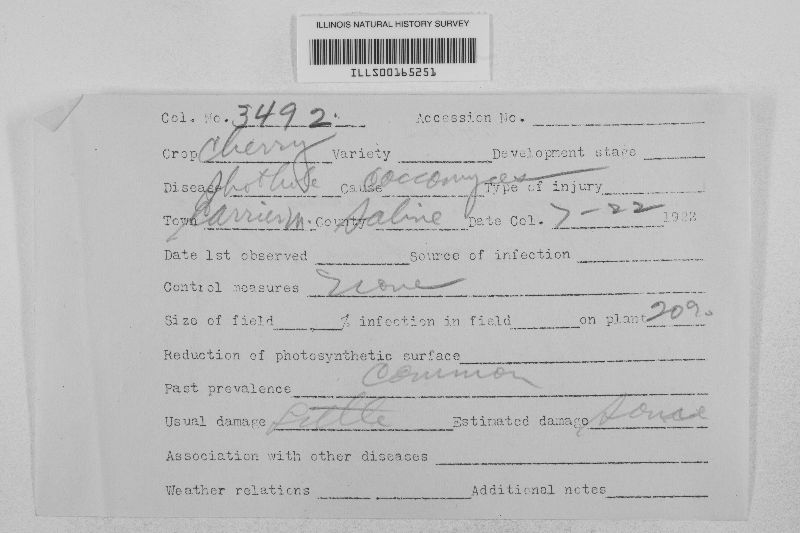 ILLINOIS NATURAL HISTORY SURVEY
ILLS00165251
Col. No. 3492. Accession No.
Crop Cherry Variety Development stage
Disease Shothole Cause Coccomyces Type of injury
Town Carrier M. County Saline Date Col. 7-22 1922
Date 1st observed Source of infection
Control measures None
Size of field % infection in field on plant 20%
Reduction of photosynthetic surface
Past prevalence Common
Usual damage Little Estimated damage Some
Association with other diseases
Weather relations Additional notes